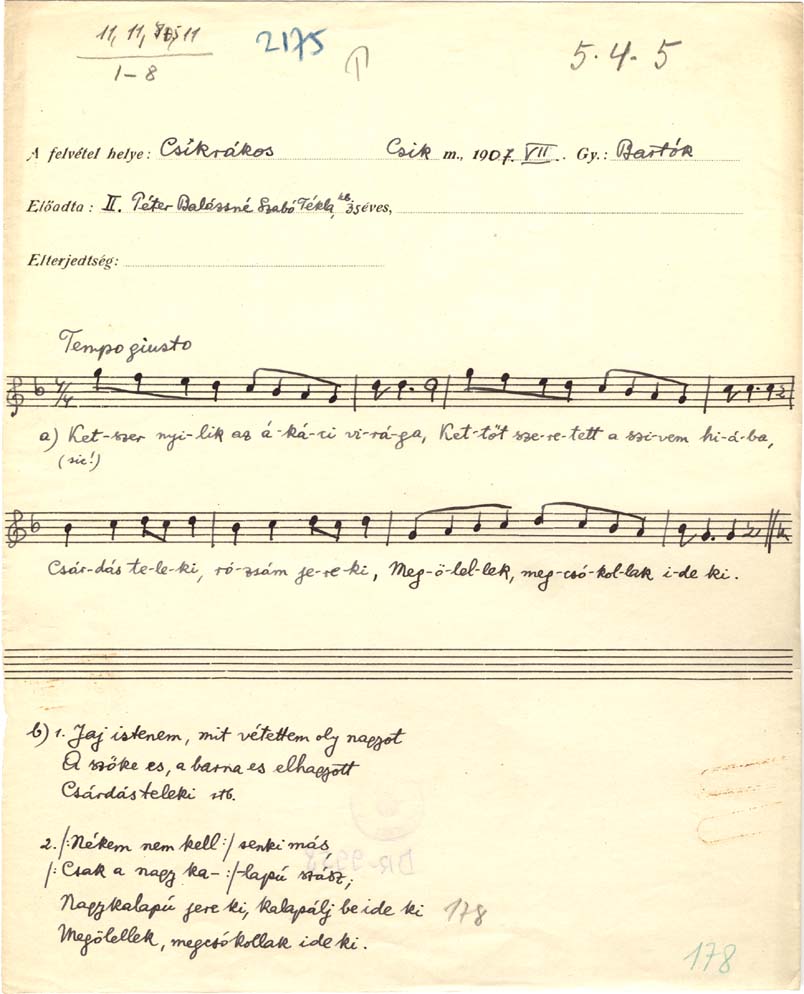 11, 11, 11
2175
5. 4. 5
1-8
A felvétel helye: Csíkrákos Csik m., 1907. VII. Gy.: Bartók
Előadta: II. Péter Balázsné Szabó Tékla, kb. 35 éves,
Elterjedtség:
Tempo giusto
4/4
a) Ket-szer nyi-lik az á-ká-ci vi-rá-ga, Ket-tőt sze-re-tett a szi-vem hi-á-ba,
(sic!)
Csár-dás te-le-ki, ró-zsám je-re-ki, Meg-ö-lel-lek, meg-csó-kol-lak i-de ki.
b) 1. Jaj istenem, mit vétettem oly nagyot
A szőke es, a barna es elhagyott
Csárdás teleki stb.
2. /: Nékem nem kell :/ senki más
/: Csak a nagy ka- :/-lapú szász;
Nagykalapú jere ki, kalapálj be ide ki 178
Megölellek, megcsókollak ide ki.
178